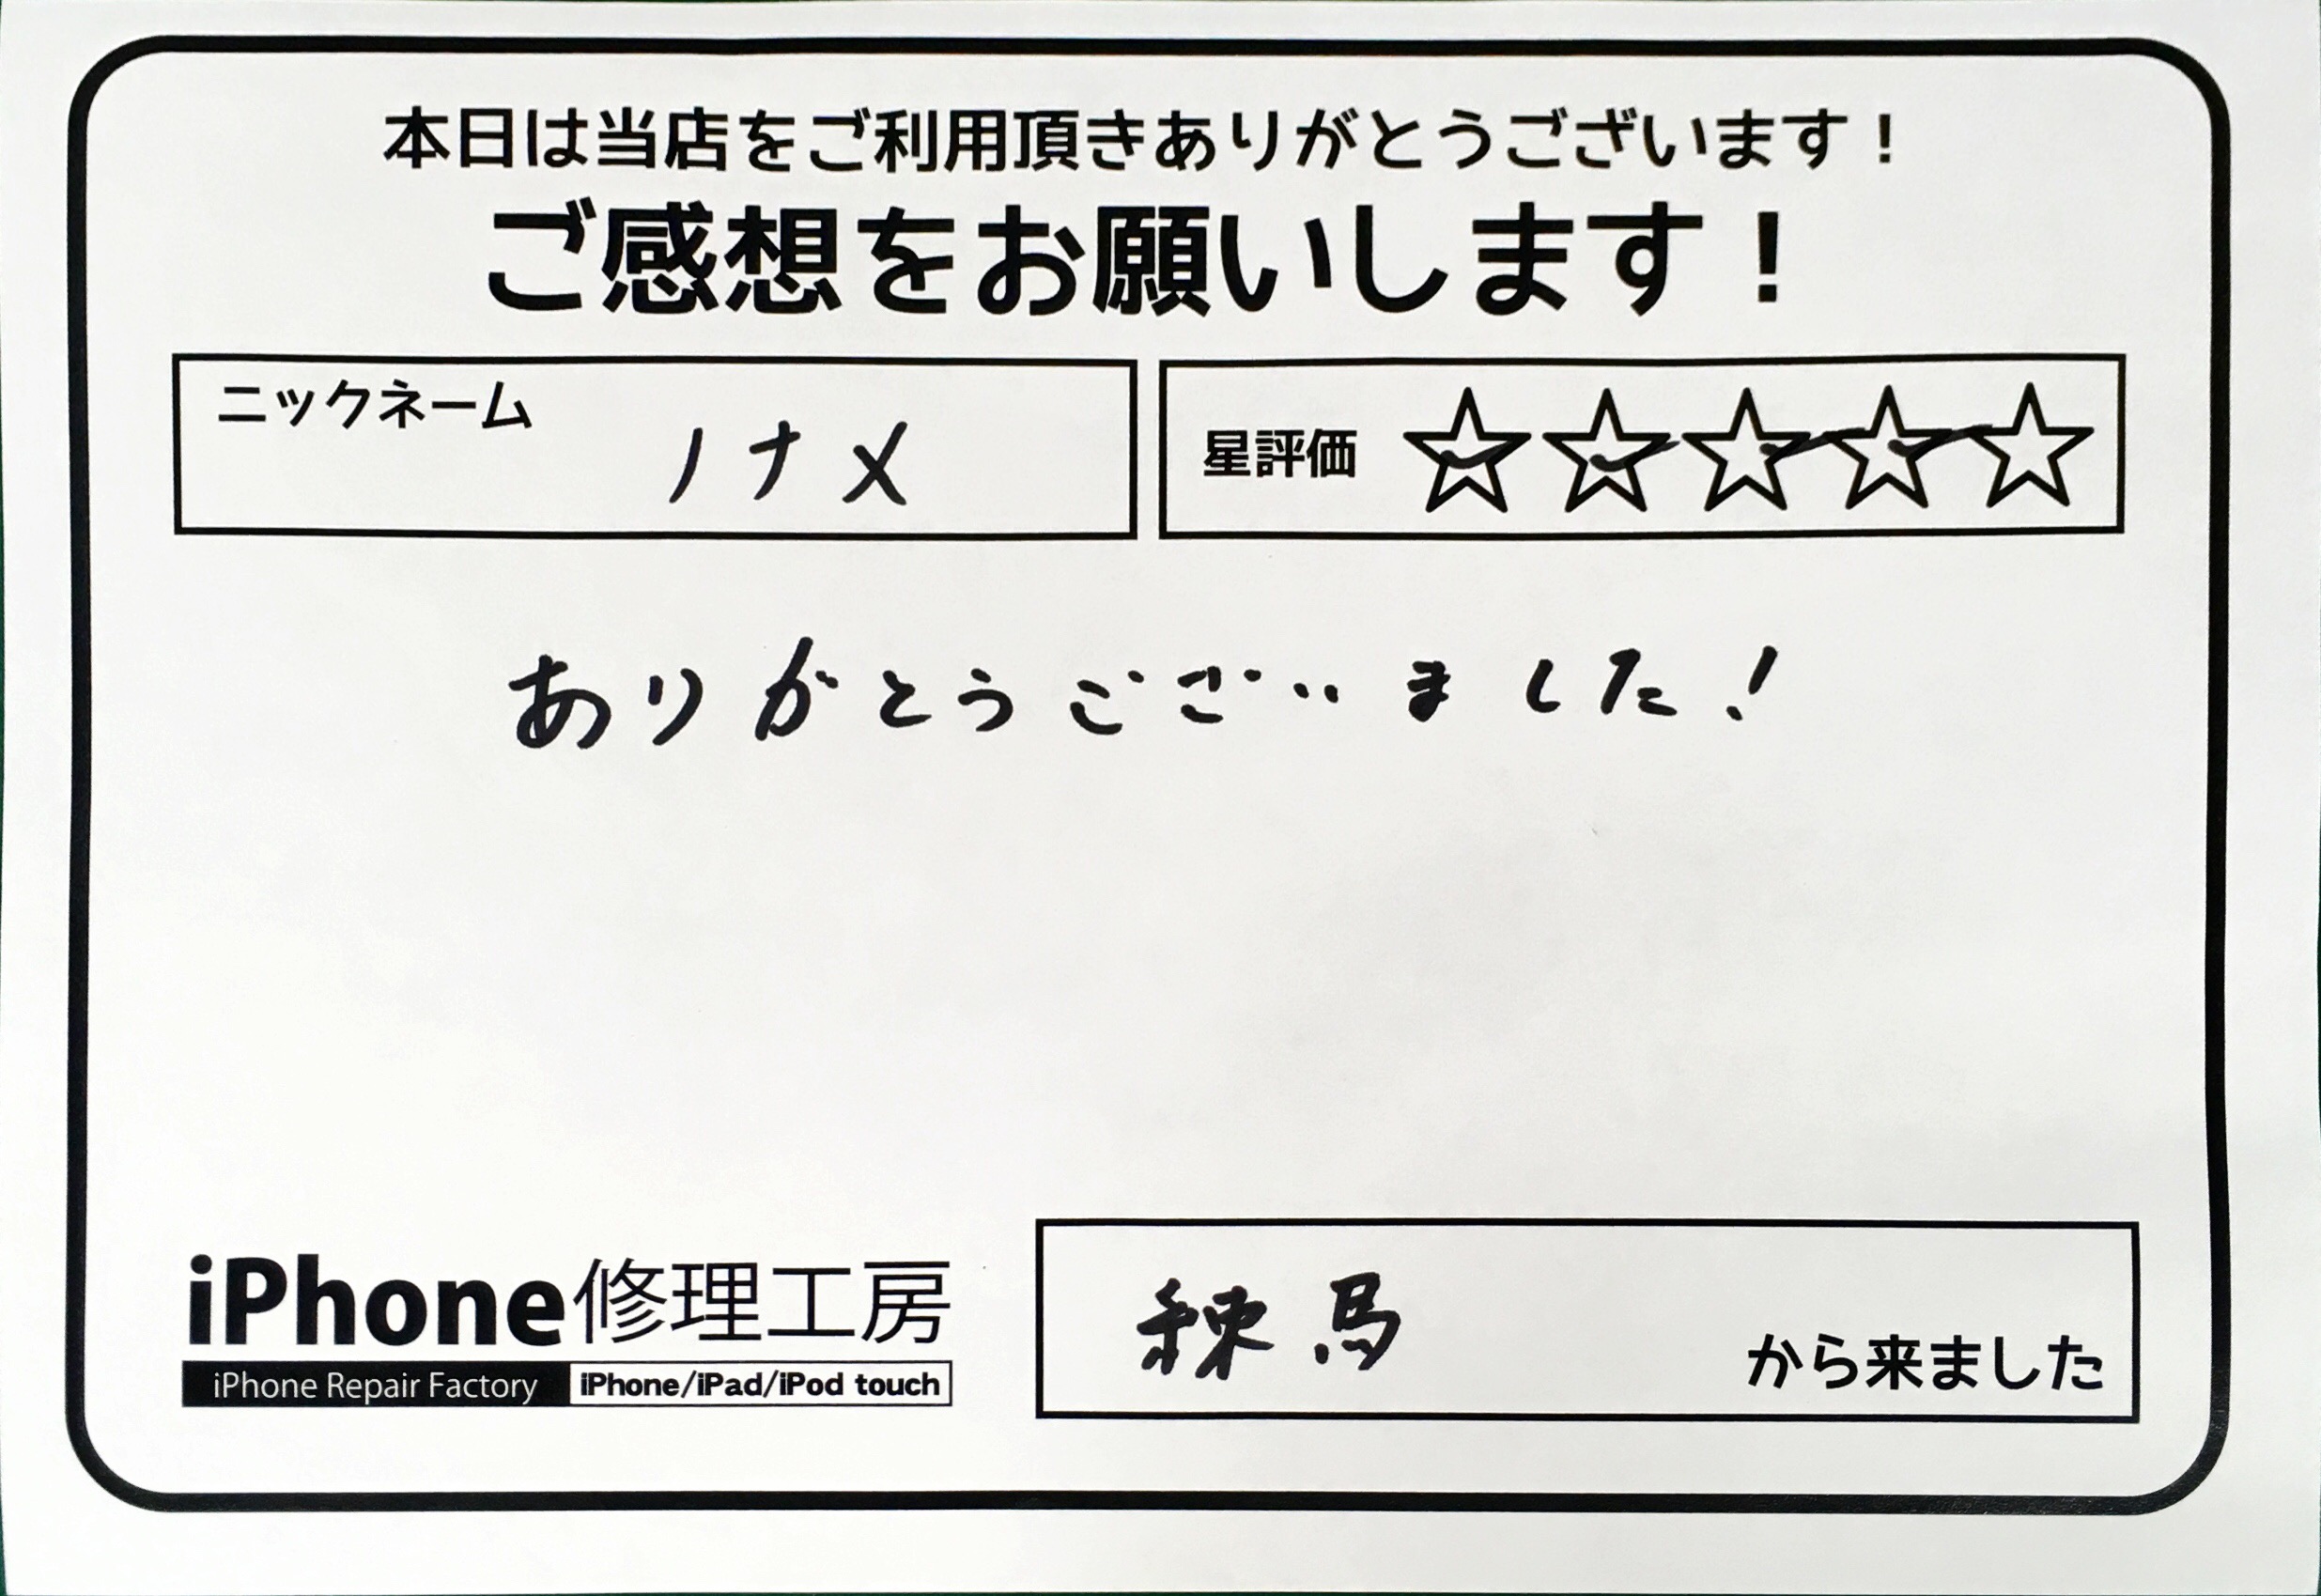 本日は当店をご利用頂きありがとうございます！
ご感想をお願いします！
ニックネーム ノナメ
星評価 ☆☆☆☆☆
ありがとうございました！
iPhone修理工房
iPhone Repair Factory iPhone/iPad/iPod touch
練馬 から来ました